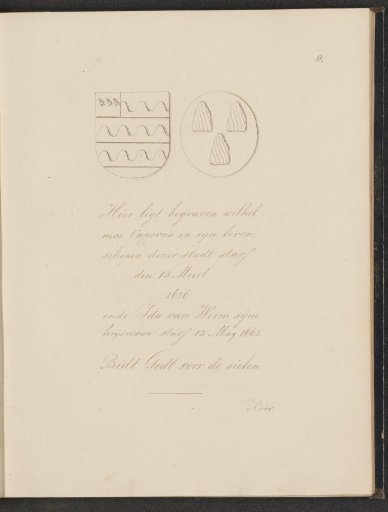 9.
Hier ligt begraven wilhel
mus Caporns in sijn leven
schepen dezer stadt starf
den 18 Meert
1676
ende Ida van Werm sijne
huysvrouwe starf 13 May 1662
Bidt Godt voor de sielen